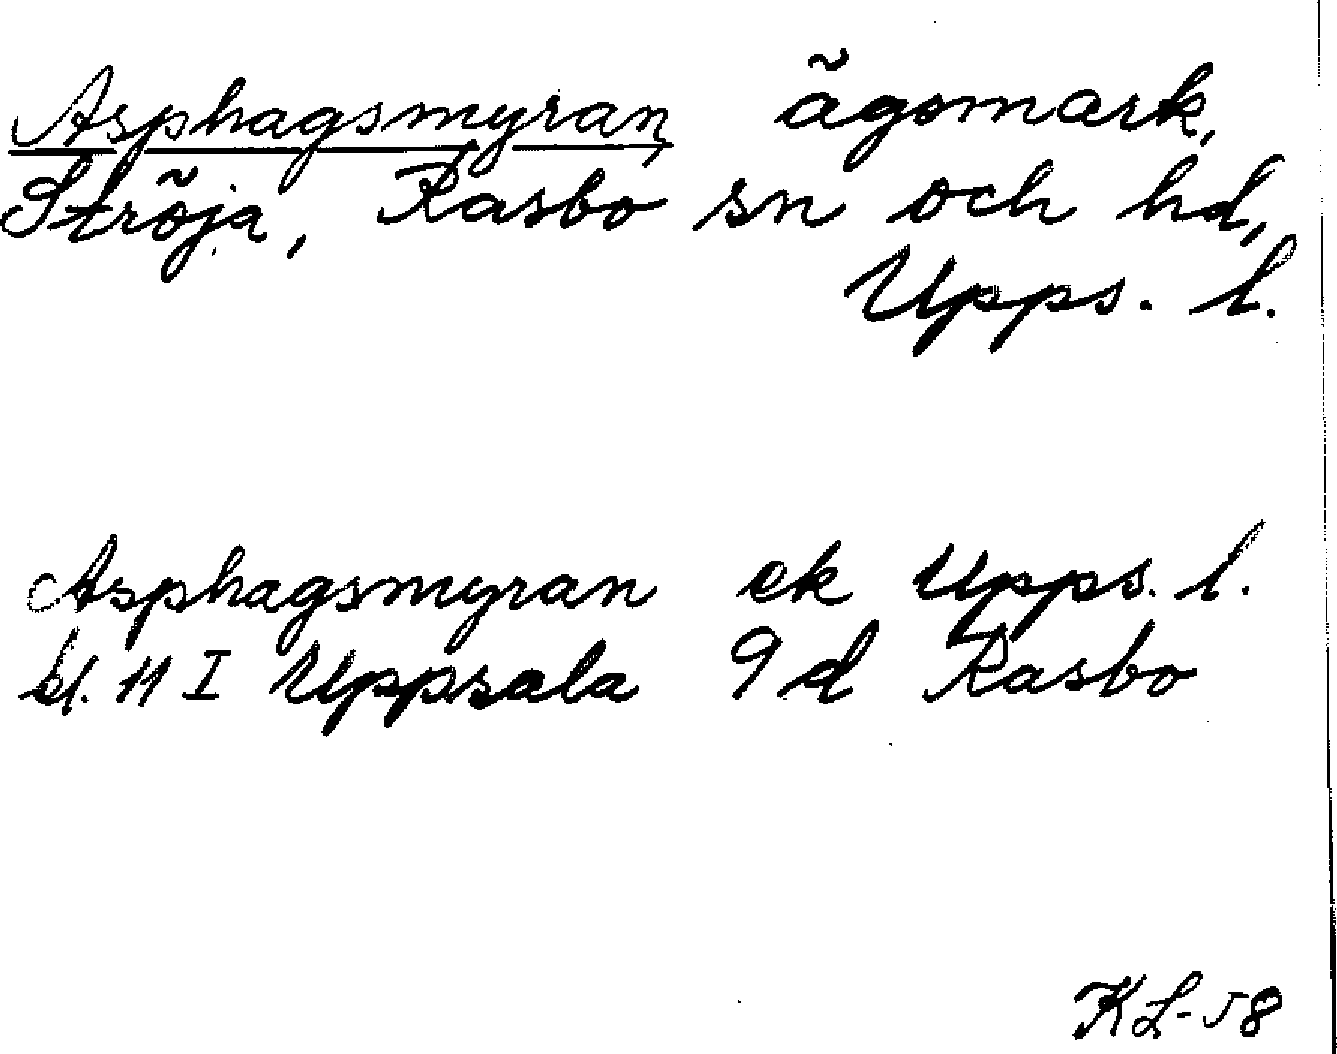 Asphagsmyran, ägomark,
Ströja, Rasbo sn och hd,
Upps. l.
Asphagsmyran ek Upps. l.
bl. 11 I Uppsala 9 d Rasbo
KL-58